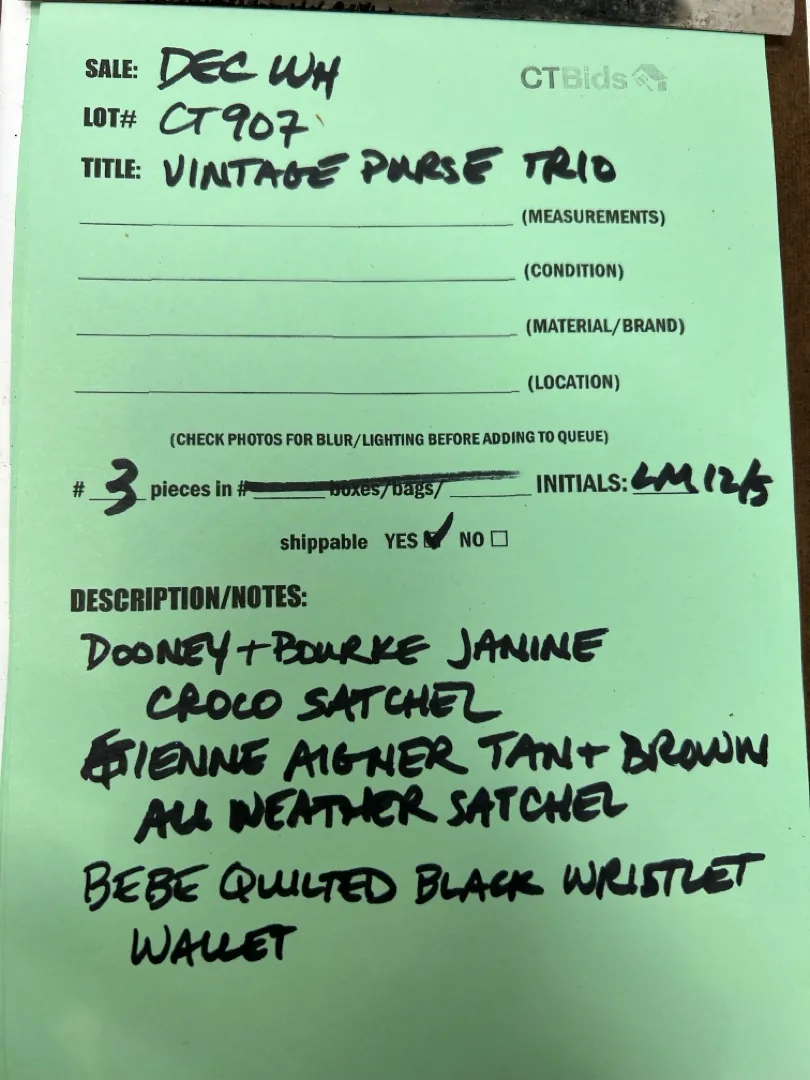 SALE: DEC WH
CTBids
LOT# CT907
TITLE: VINTAGE PURSE TRIO
(MEASUREMENTS)
(CONDITION)
(MATERIAL/BRAND)
(LOCATION)
(CHECK PHOTOS FOR BLUR/LIGHTING BEFORE ADDING TO QUEUE)
# 3 pieces in # boxes/bags/ INITIALS: LM 12/5
shippable YES NO
DESCRIPTION/NOTES:
DOONEY + BOURKE JANINE
CROCO SATCHEL
ETIENNE AIGNER TAN + BROWN
ALL WEATHER SATCHEL
BEBE QUILTED BLACK WRISTLET
WALLET